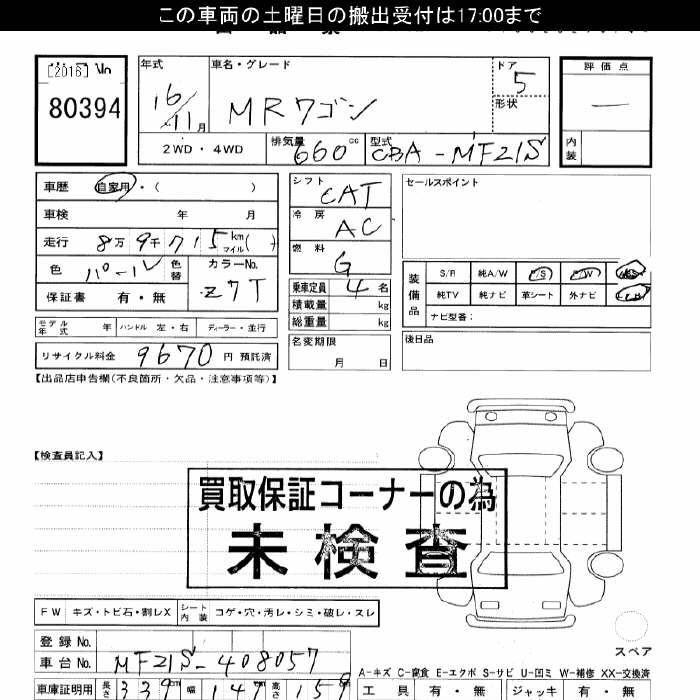 この車両の土曜日の搬出受付は17:00まで
[2016] No
80394
年式
16/11月
車名・グレード
MRワゴン
ドア
5
形状
評価点
—
内装
2WD・4WD
排気量
660cc
型式
CBA-MF21S
車歴 自家用・( )
車検 年 月
走行 8万9千715km マイル( )
色 パール 色替
カラーNo.
Z7T
保証書 有・無
モデル年式 年 ハンドル 左・右 ディーラー・並行
リサイクル料金 9670円 預託済
シフト
CAT
冷房
AC
燃料
G
乗車定員 4名
積載量 kg
総重量 kg
名変期限
月 日
セールスポイント
装備品
S/R 純A/W P/S P/W ABS
純TV 純ナビ 革シート 外ナビ
ナビ型番:
後日品
【出品店申告欄(不良箇所・欠品・注意事項等)】
【検査員記入】
買取保証コーナーの為
未検査
FW キズ・トビ石・割レX シート内装 コゲ・穴・汚レ・シミ・破レ・スレ
スペア
登録No.
車台No. MF21S-408057
A-キズ C-腐食 E-エクボ S-サビ U-凹ミ W-補修 XX-交換済
車庫証明用 長さ 339cm 幅 147cm 高さ 159
工具 有・無 ジャッキ 有・無